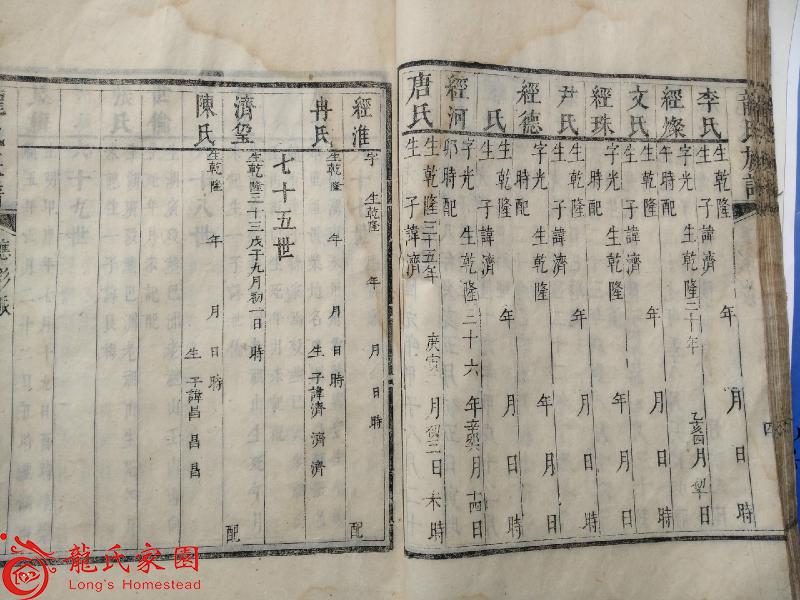 龍氏族譜
李氏 生乾隆 年 月 日 時
生 子諱濟
經燦 字光 生乾隆三十年 乙亥四月 日
午時配
文氏 生乾隆 年 月 日 時
生 子諱濟
經珠 字光 生乾隆 年 月 日
時配
尹氏 生乾隆 年 月 日 時
生 子諱濟
經德 字光 生乾隆 年 月 日
時配
氏 生乾隆 年 月 日 時
生 子諱濟
經河 字光 生乾隆二十六年辛 月 日
時配
唐氏 生乾隆三十五年庚寅 月初三日未時
生 子諱濟
經淮 字 生乾隆 年 月 日 時
配
冉氏 生乾隆 年 月 日 時
生 子諱濟 濟 濟
七十五世
濟 生乾隆三十三戊子九月初一日 時
配
陳氏 生乾隆 年 月 日 時
生 子諱昌 昌 昌
龍氏家園
Long's Homestead